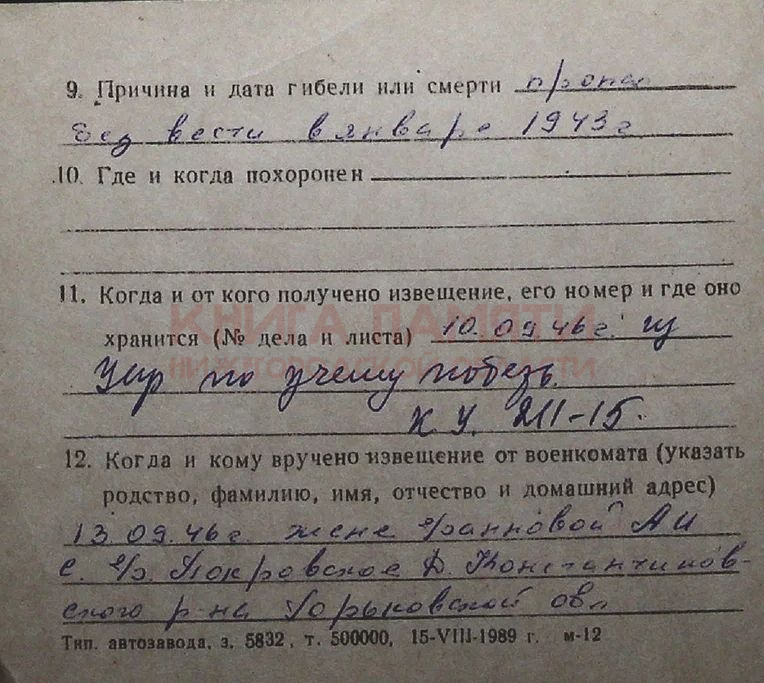 9. Причина и дата гибели или смерти пропал
без вести в январе 1943 г
10. Где и когда похоронен
11. Когда и от кого получено извещение, его номер и где оно
КНИГА ПАМЯТИ
хранится (№ дела и листа) 10.09.46 г. из
Упр по учету
К. У. 211-15.
12. Когда и кому вручено извещение от военкомата (указать
родство, фамилию, имя, отчество и домашний адрес)
13.09.46 г. жене А И
с. Покровское Д. Константинов-
ского р-на Горьковской обл
Тип. автозавода, з. 5832, т. 500000, 15-VIII-1989 г. м-12